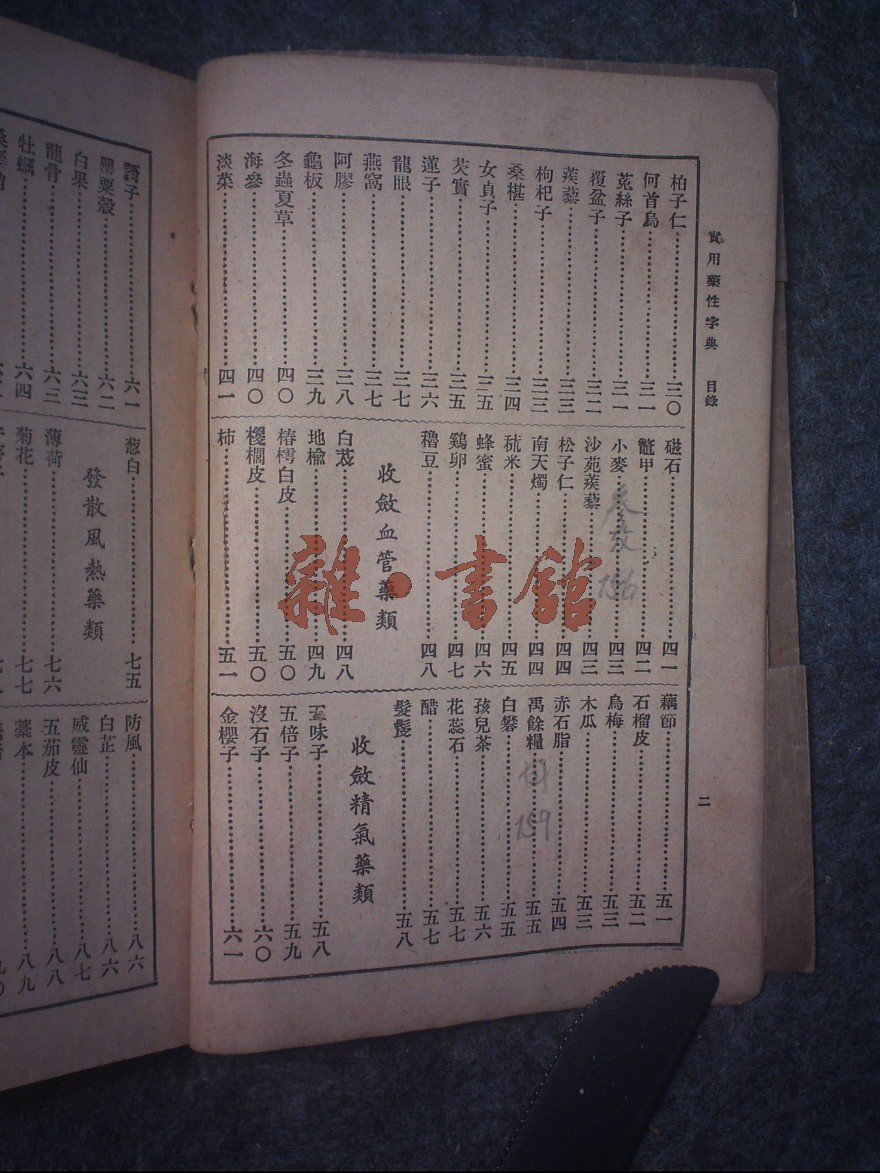 實用藥性字典　目錄
二
柏子仁……三〇
何首烏……三一
菟絲子……三一
覆盆子……三二
蒺藜……三三
枸杞子……三三
桑椹……三四
女貞子……三五
芡實……三五
蓮子……三六
龍眼……三七
燕窩……三七
阿膠……三八
龜板……三九
冬蟲夏草……四〇
海參……四〇
淡菜……四一
磁石……四一
鼈甲……四二
小麥……四三
沙苑蒺藜……四三
松子仁……四四
南天燭……四四
秫米……四五
蜂蜜……四六
鷄卵……四七
穭豆……四八
收斂血管藥類
白芨……四八
地楡……四九
椿樗白皮……五〇
椶櫚皮……五〇
柿……五一
藕節……五一
石榴皮……五二
烏梅……五三
木瓜……五三
赤石脂……五四
禹餘糧……五五
白礬……五五
孩兒茶……五六
花蕊石……五七
醋……五七
髮髲……五八
收斂精氣藥類
五味子……五八
五倍子……五九
沒石子……六〇
金櫻子……六一
訶子……六一
罌粟殼……六二
白果……六三
龍骨……六三
牡蠣……六四
葱白……七五
發散風熱藥類
薄荷……七六
菊花……七七
防風……八六
白芷……八六
威靈仙……八七
五茄皮……八八
藁本……八九
156
159
雜·書館